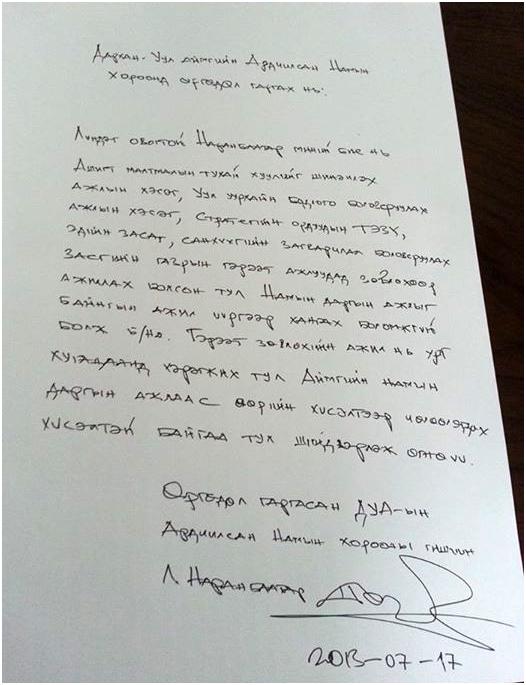 Дархан-Уул аймгийн Ардчилсан Намын
хороонд өргөдөл гаргах нь:
Лүндэг овогтой Наранбаатар миний бие нь
Ашигт малтмалын тухай хуулийг шинэчлэх
ажлын хэсэг, Уул уурхайн бодлого боловсруулах
ажлын хэсэг, Стратегийн ордуудын ТЭЗҮ,
эдийн засаг, санхүүгийн загварчлал боловсруулах
Засгийн газрын гэрээт ажлуудад зөвлөхөөр
ажиллах болсон тул Намын даргын ажлыг
байнгын ажил үүргээр хангах боломжгүй
болж б/на. Гэрээт зөвлөхийн ажил нь урт
хугацаанд хэрэгжих тул Аймгийн намын
даргын ажлаас өөрийн хүсэлтээр чөлөөлөгдөх
хүсэлтэй байгаа тул шийдвэрлэж өгнө үү.
Өргөдөл гаргасан ДУА-ын
Ардчилсан Намын хорооны гишүүн
Л. Наранбаатар
2013-07-17